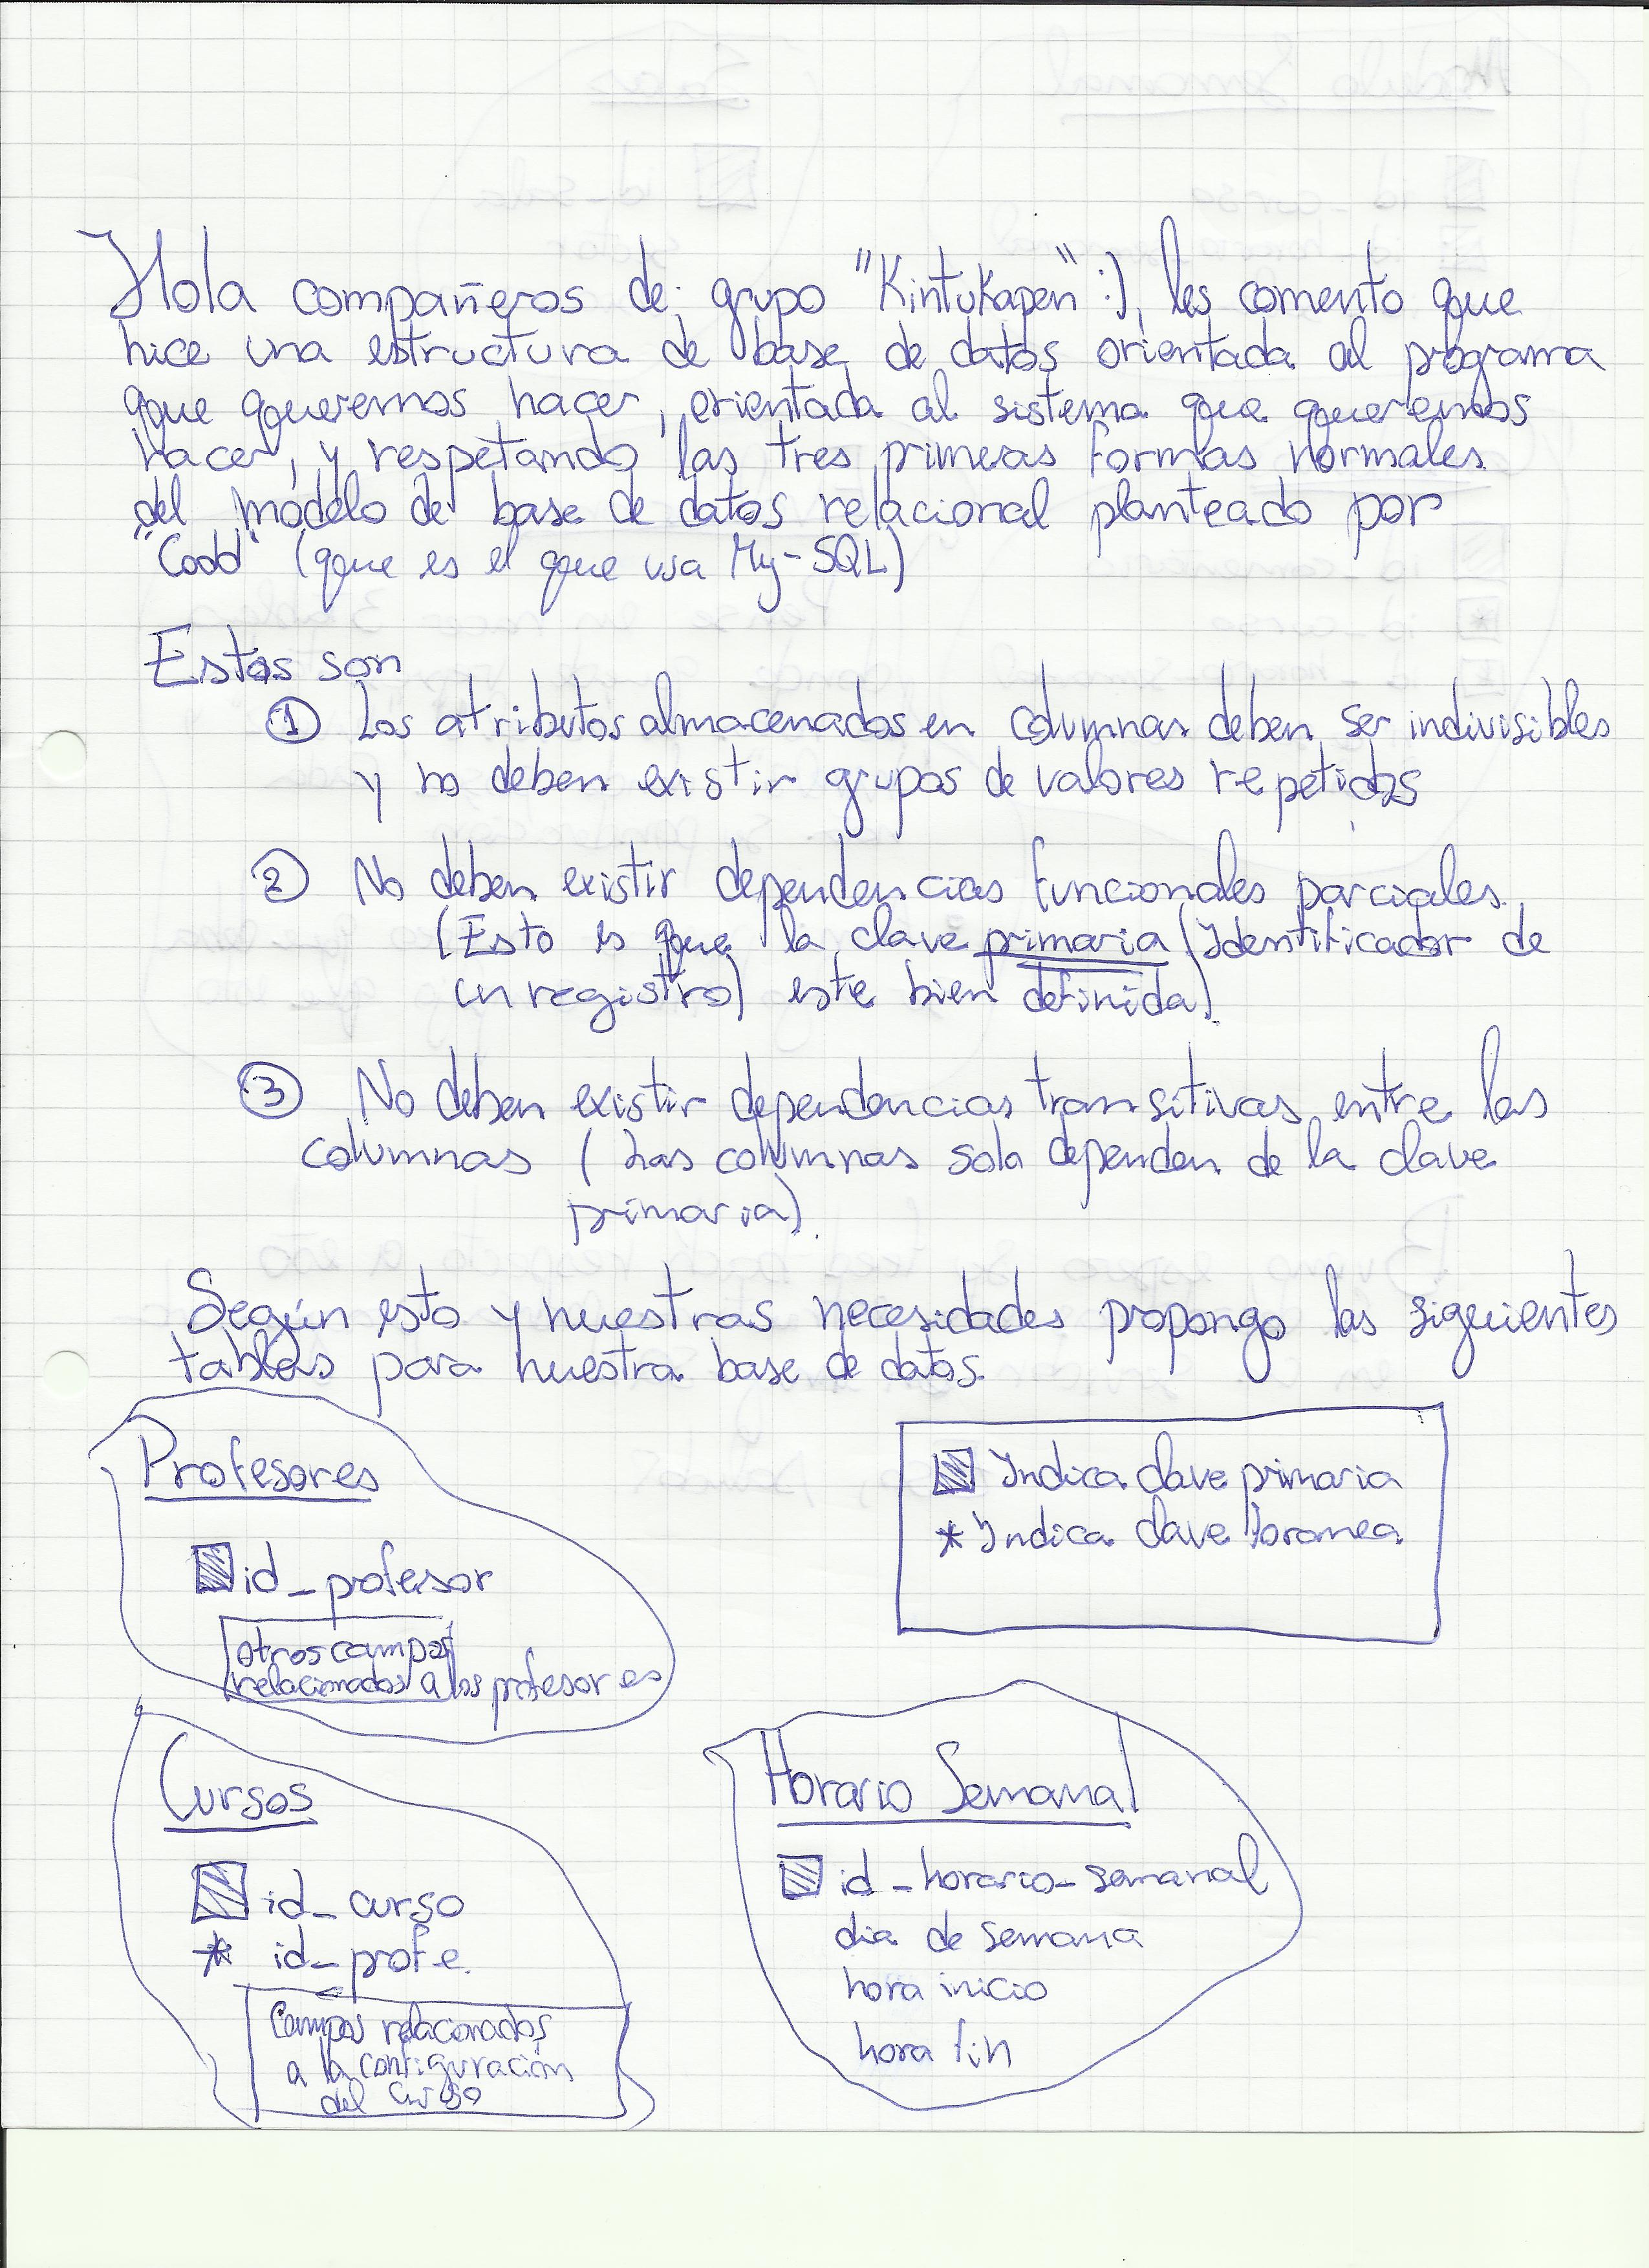 Hola compañeros de grupo "Kintukapen" :), les comento que
hice una estructura de base de datos orientada al programa
que queremos hacer, orientada al sistema que queremos
hacer, y respetando las tres primeras formas normales
del modelo de base de datos relacional planteado por
"Codd" (que es el que usa My-SQL)
Estas son
① Los atributos almacenados en columnas deben ser indivisibles
y no deben existir grupos de valores repetidos
② No deben existir dependencias funcionales parciales
(Esto es que la clave primaria (Identificador de
un registro) este bien definida).
③ No deben existir dependencias transitivas entre las
columnas (Las columnas solo dependen de la clave
primaria).
Según esto y nuestras necesidades propongo las siguientes
tablas para nuestra base de datos.
Profesores
id_profesor
otros campos
relacionados a los profesores
Indica clave primaria
* Indica clave foranea
Cursos
id_curso
* id_profe
Campos relacionados
a la configuración
del curso
Horario Semanal
id_horario_semanal
dia de semana
hora inicio
hora fin